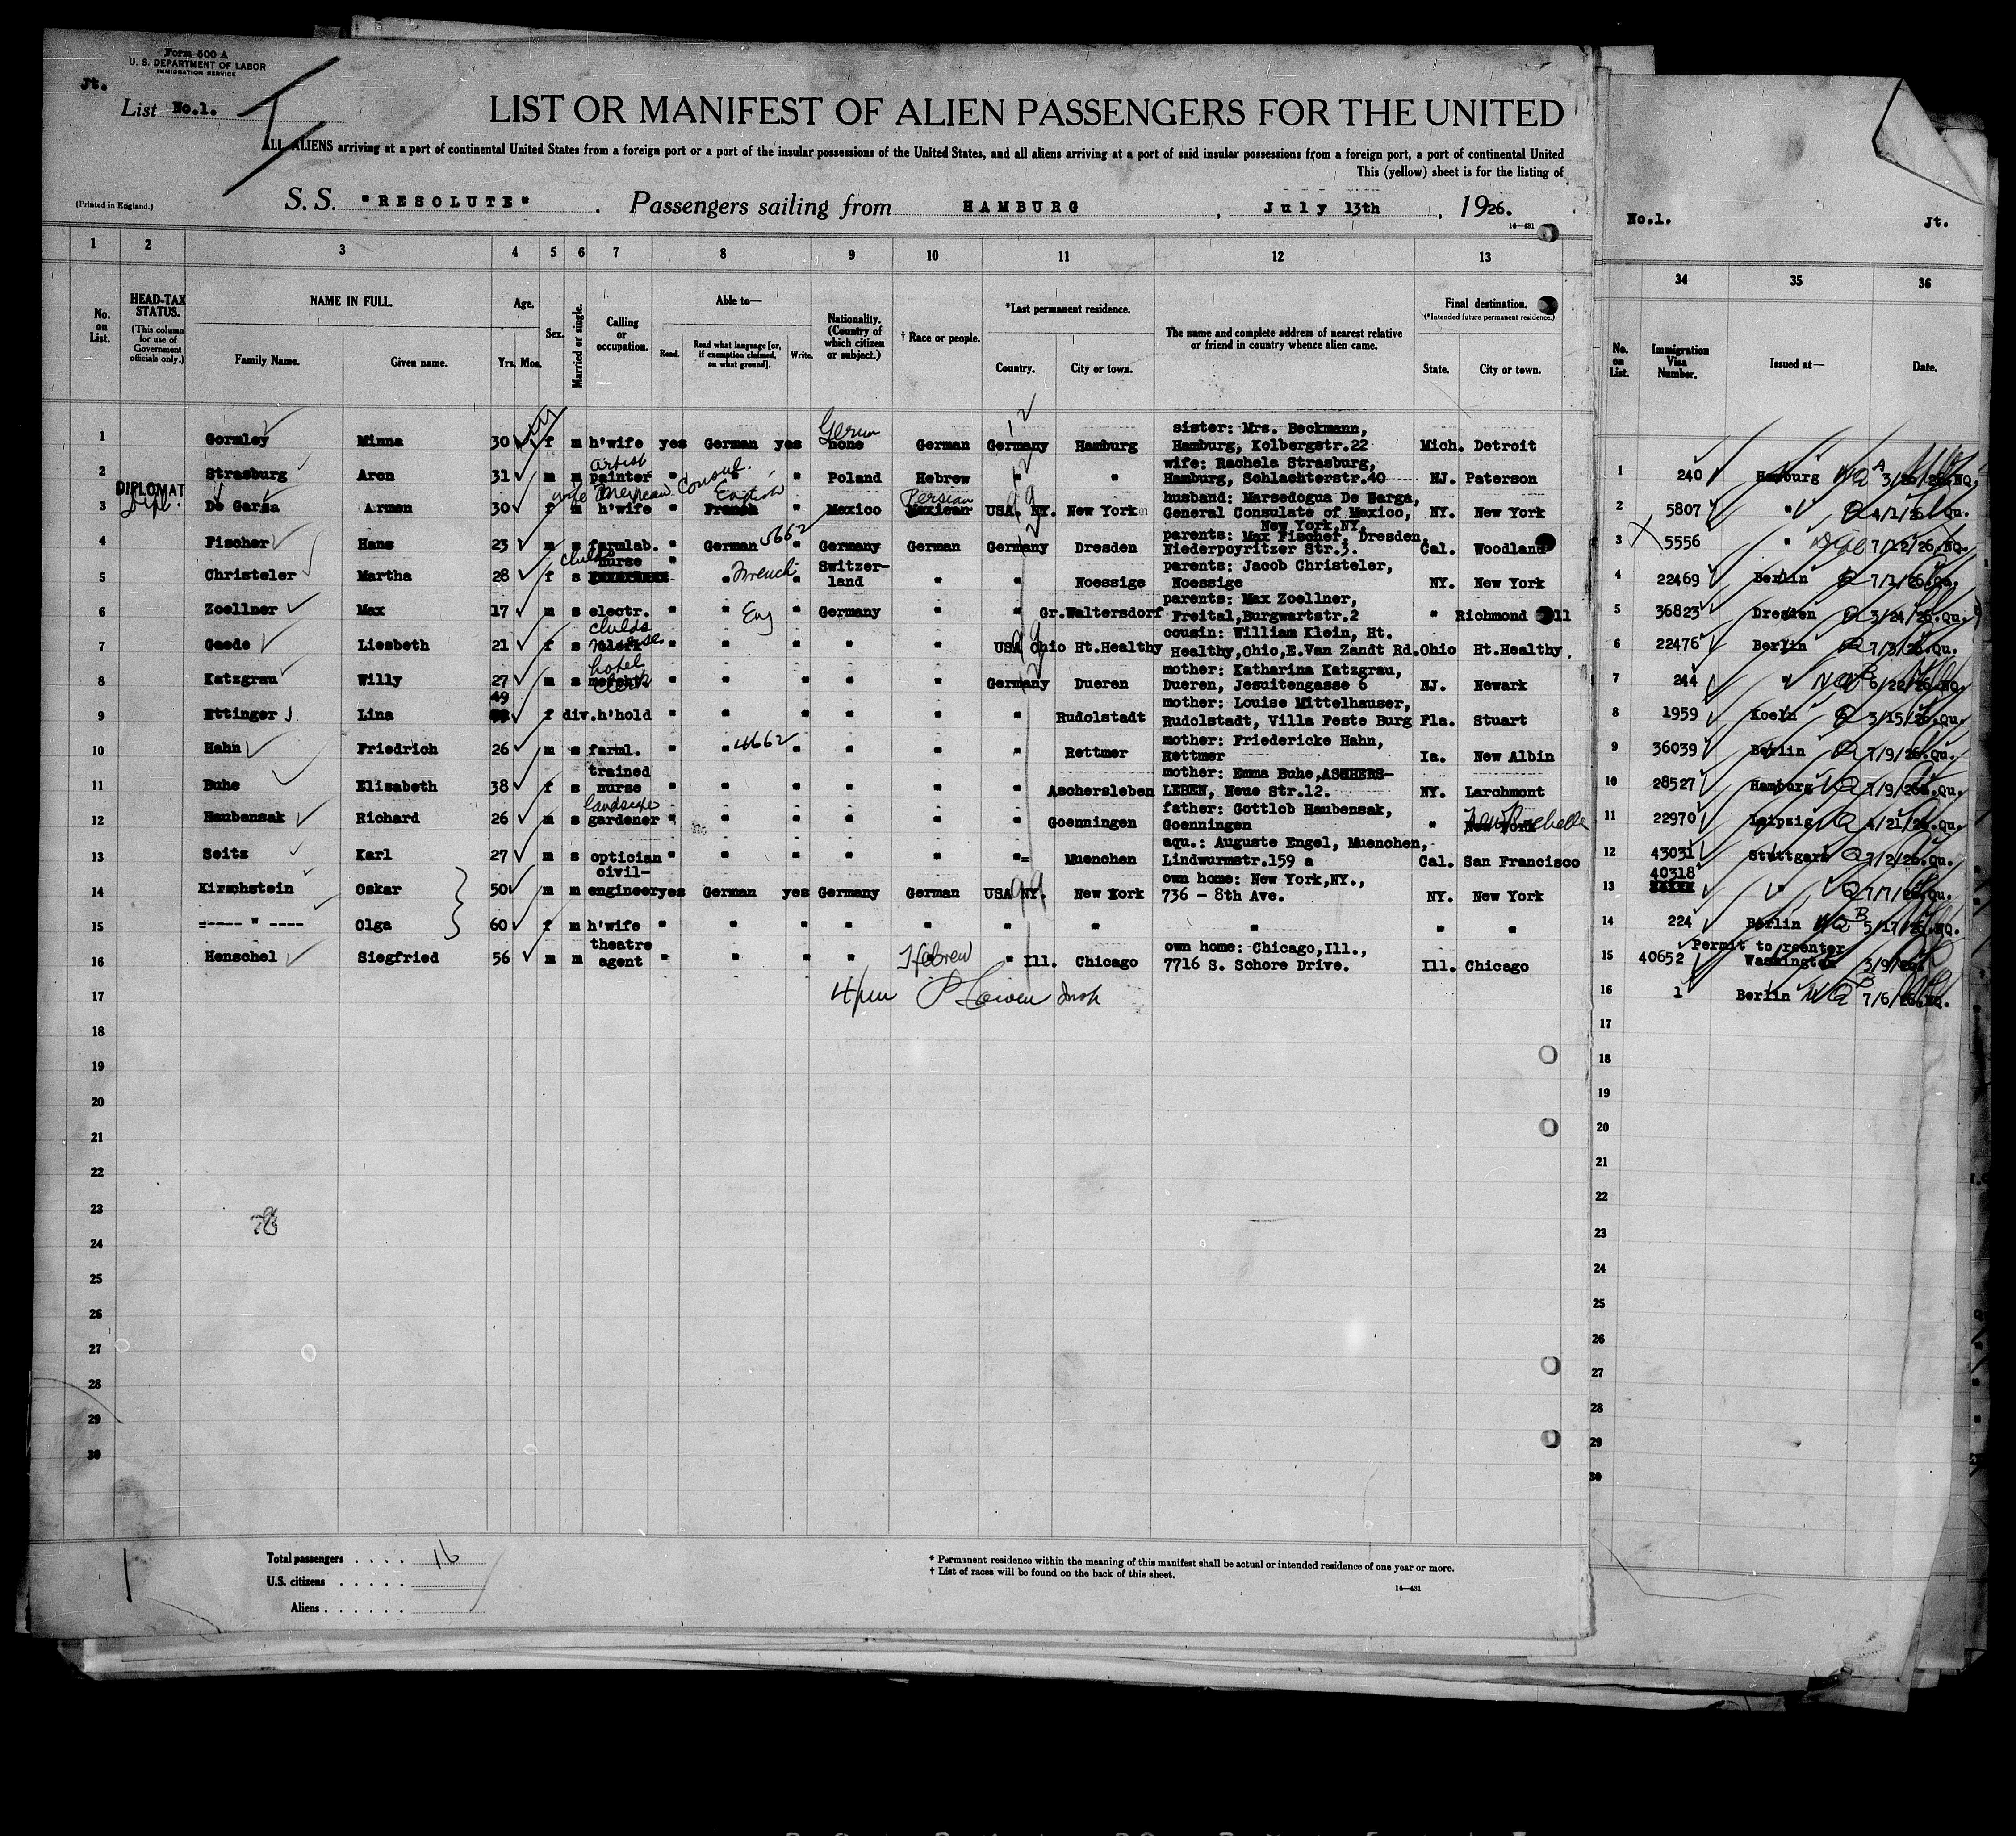 Form 500 A
U. S. DEPARTMENT OF LABOR
IMMIGRATION SERVICE
Jt.
List No.1.
LIST OR MANIFEST OF ALIEN PASSENGERS FOR THE UNITED
ALL ALIENS arriving at a port of continental United States from a foreign port or a port of the insular possessions of the United States, and all aliens arriving at a port of said insular possessions from a foreign port, a port of continental United
This (yellow) sheet is for the listing of
(Printed in England.)
S. S. "RESOLUTE" . Passengers sailing from HAMBURG , July 13th , 1926.
14—431
No.1. Jt.
1 2 3 4 5 6 7 8 9 10 11 12 13
34 35 36
No. on List.
HEAD-TAX STATUS.
(This column for use of Government officials only.)
NAME IN FULL.
Family Name. Given name.
Age.
Yrs. Mos.
Sex.
Married or single.
Calling or occupation.
Able to—
Read. Read what language [or, if exemption claimed, on what ground]. Write.
Nationality. (Country of which citizen or subject.)
† Race or people.
*Last permanent residence.
Country. City or town.
The name and complete address of nearest relative or friend in country whence alien came.
Final destination.
(*Intended future permanent residence.)
State. City or town.
No. on List.
Immigration Visa Number.
Issued at—
Date.
1 Gormley Minna 30 f m h'wife yes German yes none German Germany Hamburg sister: Mrs. Beckmann, Hamburg, Kolbergstr.22 Mich. Detroit
2 Strasburg Aron 31 m m painter artist " " " Poland Hebrew " " wife: Rachela Strasburg, Hamburg, Schlachterstr.40 NJ. Paterson
DIPLOMAT
Dipl.
wife Mexican Consul.
3 De Garza Armen 30 f m h'wife " French English " Mexico Mexican Persian USA. NY. New York husband: Marsedogua De Sarga, General Consulate of Mexico, New York,NY. NY. New York
4 Fischer Hans 23 m s farmlab. " German 5662 " Germany German Germany Dresden parents: Max Fischer, Dresden, Niederpoyritzer Str.3. Cal. Woodland
5 Christeler Martha 28 f s childs nurse " " French " Switzerland " " Noessige parents: Jacob Christeler, Noessige NY. New York
6 Zoellner Max 17 m s electr. " " Eng " Germany " " Gr.Waltersdorf parents: Max Zoellner, Freital,Burgwartstr.2 " Richmond
7 Gaede Liesbeth 21 f s childs nurse " " " " " USA Ohio Ht.Healthy cousin: William Klein, Ht. Healthy,Ohio,E.Van Zandt Rd. Ohio Ht.Healthy.
8 Katzgrau Willy 27 m s hotel clerk " " " " " Germany Dueren mother: Katharina Katzgrau, Dueren, Jesuitengasse 6 NJ. Newark
9 Ettinger Lina 49 f div. h'hold " " " " " " Rudolstadt mother: Louise Mittelhauser, Rudolstadt, Villa Feste Burg Fla. Stuart
10 Hahn Friedrich 26 m s farml. " " 4662 " " " " Rettmer mother: Friedericke Hahn, Rettmer Ia. New Albin
11 Buhe Elisabeth 38 f s trained nurse " " " " " " Aschersleben mother: Emma Buhe,ASCHERS-LEBEN, Neue Str.12. NY. Larchmont
12 Haubensak Richard 26 m s landscape gardener " " " " " " Goenningen father: Gottlob Haubensak, Goenningen " New York New Rochelle
13 Seitz Karl 27 m s optician " " " " " "= Muenchen aqu.: Auguste Engel, Muenchen, Lindwurmstr.159 a Cal. San Francisco
14 Kirschstein Oskar 50 m m civil-engineer yes German yes Germany German USA NY. New York own home: New York,NY., 736 - 8th Ave. NY. New York
15 =---- " ---- Olga 60 f m h'wife " " " " " " " " " "
16 Henschel Siegfried 56 m m theatre agent " " " " Hebrew " Ill. Chicago own home: Chicago,Ill., 7716 S. Schore Drive. Ill. Chicago
17
18
19
20
21
22
23
24
25
26
27
28
29
30
1 240 Hamburg
2 5807 " 4/1/26 Qu.
3 5556 " Dipl 7/12/26 NQ.
4 22469 Berlin 7/1/26.Qu.
5 36823 Dresden 3/24/26.Qu.
6 22476 Berlin 7/3/26.Qu.
7 244 " 6/22/26 NQ.
8 1959 Koeln 3/15/26.Qu.
9 36039 Berlin 7/9/26.Qu.
10 28527 Hamburg 7/9/26.Qu.
11 22970 Leipzig 4/21/26.Qu.
12 43031 Stuttgart 7/2/26.Qu.
13 40318 " 7/7/26.Qu.
14 224 Berlin 5/17/26.NQ.
15 40652 Permit to reenter Washington 3/9/26.
16 1 Berlin 7/6/26.NQ.
17
18
19
20
21
22
23
24
25
26
27
28
29
30
Total passengers . . . . 16
U.S. citizens . . . . .
Aliens . . . . . .
* Permanent residence within the meaning of this manifest shall be actual or intended residence of one year or more.
† List of races will be found on the back of this sheet.
14—431